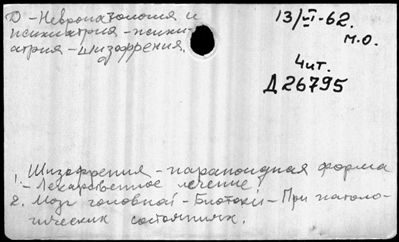 D - Невропатология и
психиатрия - психи-
атрия - шизофрения.
13/VI-62.
м.о.
Чит.
Д26795
1. Шизофрения - параноидная форма
- Лекарственное лечение.
2. Мозг головной - Биотоки - При патоло-
гических состояниях.